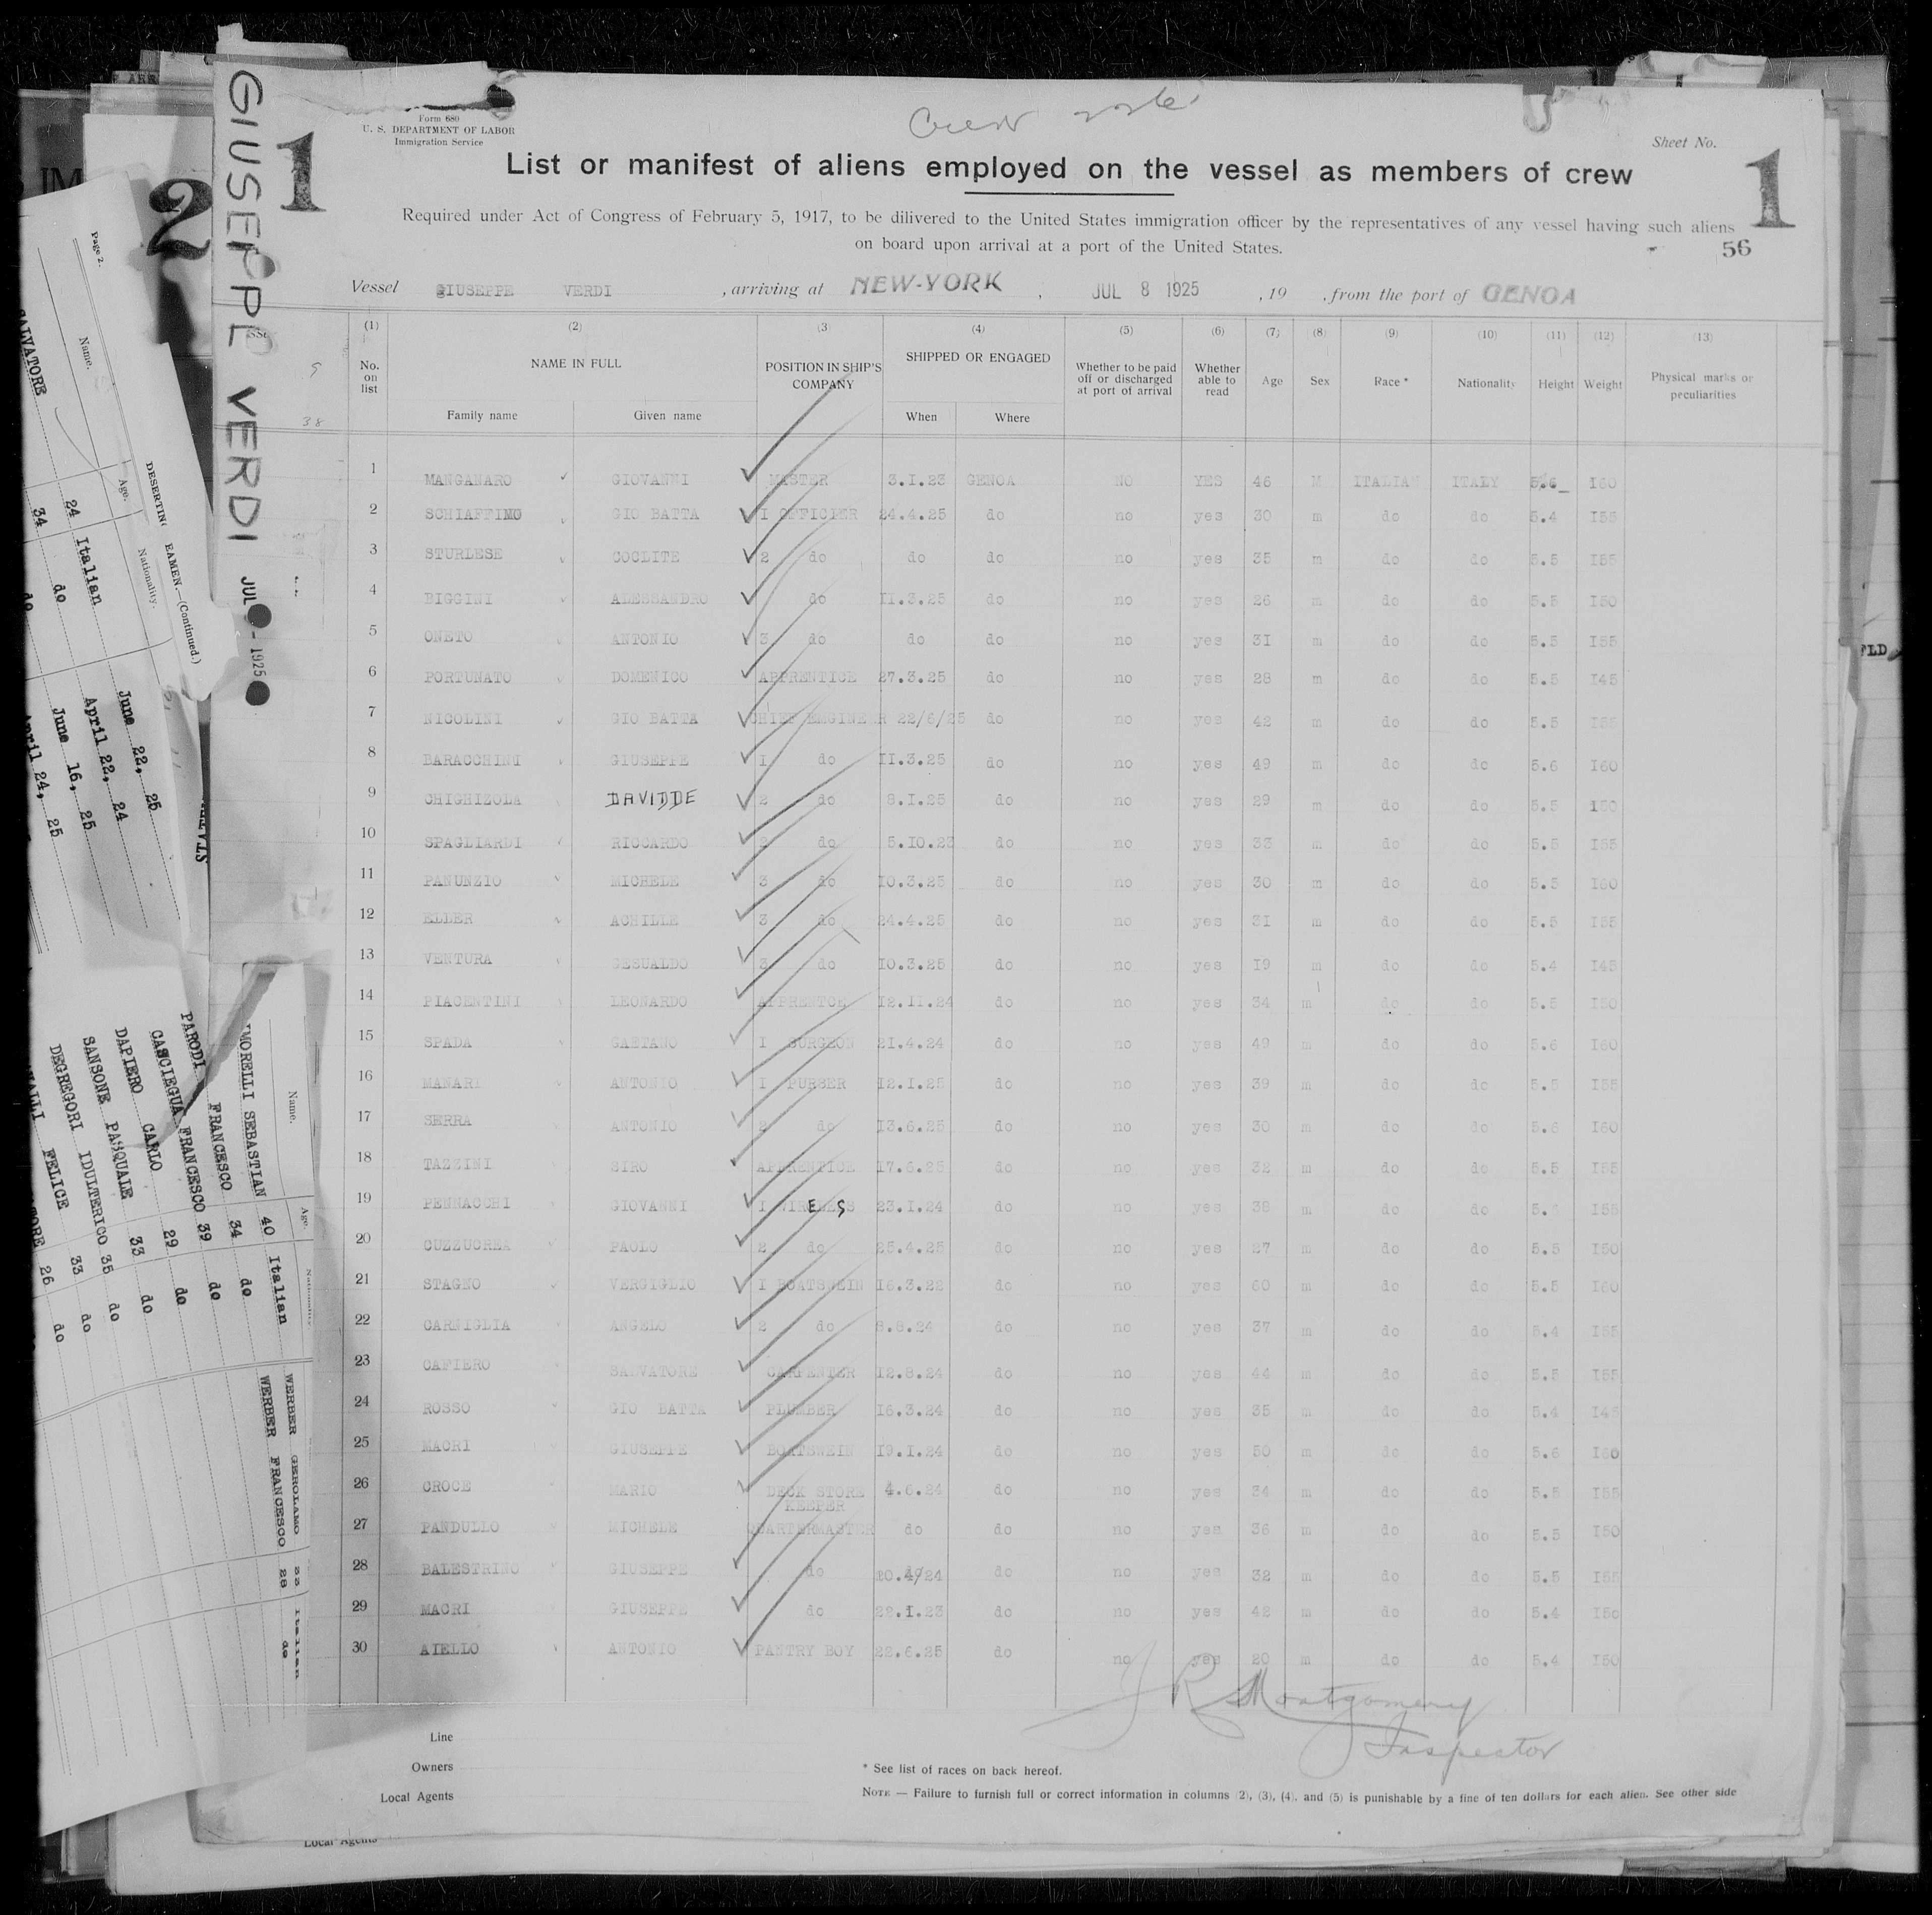 GIUSEPPE VERDI JUL 8 - 1925
1
2
Form 680
U. S. DEPARTMENT OF LABOR
Immigration Service
Crew
Sheet No.
1
List or manifest of aliens employed on the vessel as members of crew
Required under Act of Congress of February 5, 1917, to be dilivered to the United States immigration officer by the representatives of any vessel having such aliens
on board upon arrival at a port of the United States.
56
Vessel GIUSEPPE VERDI , arriving at NEW-YORK , JUL 8 1925 , 19 , from the port of GENOA
(1) (2) (3) (4) (5) (6) (7) (8) (9) (10) (11) (12) (13)
No. on list NAME IN FULL Family name Given name POSITION IN SHIP'S COMPANY SHIPPED OR ENGAGED When Where Whether to be paid off or discharged at port of arrival Whether able to read Age Sex Race * Nationality Height Weight Physical marks or peculiarities
38
1 MANGANARO GIOVANNI MASTER 3.I.23 GENOA NO YES 46 M ITALIAN ITALY 5.6 I60
2 SCHIAFFINO GIO BATTA I OFFICIER 24.4.25 do no yes 30 m do do 5.4 I55
3 STURLESE COCLITE 2 do do do no yes 35 m do do 5.5 I55
4 BIGGINI ALESSANDRO do II.3.25 do no yes 26 m do do 5.5 I50
5 ONETO ANTONIO 3 do do do no yes 3I m do do 5.5 I55
6 PORTUNATO DOMENICO APPRENTICE 27.3.25 do no yes 28 m do do 5.5 I45
7 NICOLINI GIO BATTA CHIEF ENGINEER 22/6/25 do no yes 42 m do do 5.5 I55
8 BARACCHINI GIUSEPPE I do II.3.25 do no yes 49 m do do 5.6 I60
9 CHIGHIZOLA DAVIDDE 2 do 8.I.25 do no yes 29 m do do 5.5 I50
10 SPAGLIARDI RICCARDO 2 do 5.I0.23 do no yes 33 m do do 5.5 I55
11 PANUNZIO MICHELE 3 do I0.3.25 do no yes 30 m do do 5.5 I60
12 ELLER ACHILLE 3 do 24.4.25 do no yes 3I m do do 5.5 I55
13 VENTURA GESUALDO 3 do I0.3.25 do no yes I9 m do do 5.4 I45
14 PIACENTINI LEONARDO APPRENTCE I2.II.24 do no yes 34 m do do 5.5 I50
15 SPADA GAETANO I SURGEON 2I.4.24 do no yes 49 m do do 5.6 I60
16 MANARI ANTONIO I PURSER I2.I.25 do no yes 39 m do do 5.5 I55
17 SERRA ANTONIO 2 do I3.6.25 do no yes 30 m do do 5.6 I60
18 TAZZINI SIRO APPRENTICE I7.6.25 do no yes 32 m do do 5.5 I55
19 PENNACCHI GIOVANNI I WIRELESS 23.I.24 do no yes 38 m do do I55
20 CUZZUCREA PAOLO 2 do 25.4.25 do no yes 27 m do do 5.5 I50
21 STAGNO VERGIGLIO I BOATSWEIN I6.3.22 do no yes 60 m do do 5.5 I60
22 CARNIGLIA ANGELO 2 do 8.8.24 do no yes 37 m do do 5.4 I55
23 CAFIERO SALVATORE CARPENTER I2.8.24 do no yes 44 m do do 5.5 I55
24 ROSSO GIO BATTA PLUMBER I6.3.24 do no yes 35 m do do 5.4 I45
25 MACRI GIUSEPPE BOATSWEIN I9.I.24 do no yes 50 m do do 5.6 I60
26 CROCE MARIO DECK STORE KEEPER 4.6.24 do no yes 34 m do do 5.5 I55
27 PANDULLO MICHELE QUARTERMASTER do do no yes 36 m do do 5.5 I50
28 BALESTRINO GIUSEPPE do 20.4/24 do no yes 32 m do do 5.5 I55
29 MACRI GIUSEPPE do 22.I.23 do no yes 42 m do do 5.4 I50
30 AIELLO ANTONIO PANTRY BOY 22.6.25 do no yes 20 m do do 5.4 I50
J R Montgomery
Inspector
Line
Owners
Local Agents
* See list of races on back hereof.
NOTE — Failure to furnish full or correct information in columns (2), (3), (4), and (5) is punishable by a fine of ten dollars for each alien. See other side
Local Agents
Page 2.
DESERTING
EAMEN.—(Continued.)
Name. Age. Nationality.
24 Italian June 22, 25
SALVATORE 34 do April 22, 24
do June 16, 25
April 24, 25
Name. Age. Nationality
MORELLI SEBASTIAN 40 Italian
FRANCESCO 34 do
PARODI FRANCESCO 39 do
CASCIEGUA
DAPIERO CARLO 29 do
SANSONE PASQUALE 33 do
DEGREGORI IDULTERICO 35 do
FELICE 33 do
26 do
WERBER GEROLAMO 22 Italian
WERBER FRANCESCO 28 do
FLD